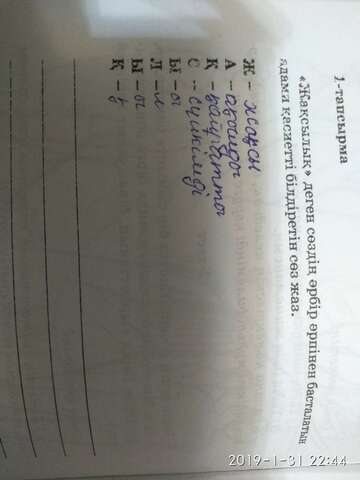 1-тапсырма
«Жақсылық» деген сөздің әрбір әрпінен басталатын
адами қасиетті білдіретін сөз жаз.
Ж – жақсы
А – абзалды
Қ – қайратты
С – сүйкімді
Ы – ы
Л – л
Ы – ы
Қ – қ
2019-1-31 22:44